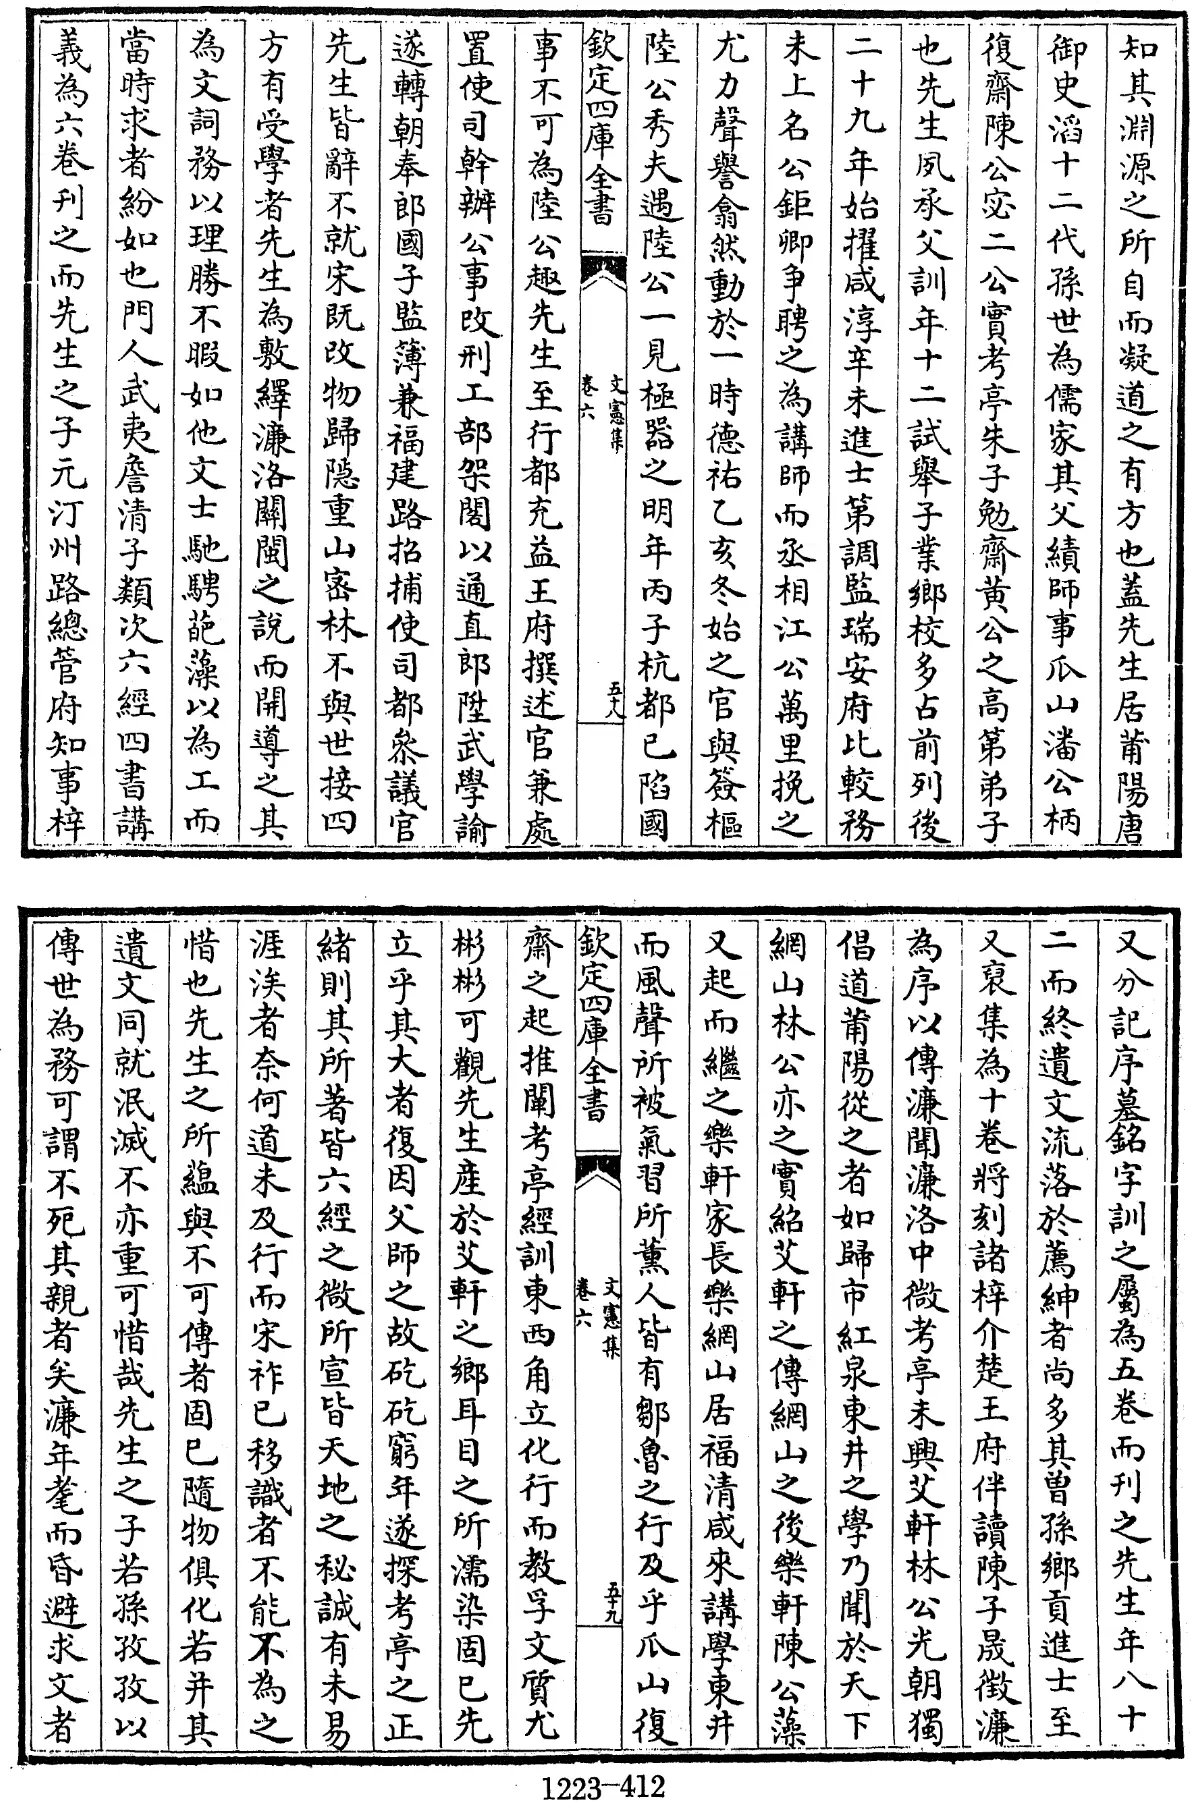 知其淵源之所自而凝道之有方也蓋先生居莆陽唐
御史滔十二代孫世為儒家其父績師事瓜山潘公柄
復齋陳公宓二公實考亭朱子勉齋黃公之高第弟子
也先生夙承父訓年十二試舉子業鄉校多占前列後
二十九年始擢咸淳辛未進士第調監瑞安府比較務
未上名公鉅卿争聘之為講師而丞相江公萬里挽之
尤力聲譽翕然動於一時德祐乙亥冬始之官與簽樞
陸公秀夫遇陸公一見極器之明年丙子杭都已陷國
欽定四庫全書
文憲集
卷六
五十八
事不可為陸公趣先生至行都充益王府撰述官兼處
置使司幹辦公事改刑工部架閣以通直郎陞武學諭
遂轉朝奉郎國子監簿兼福建路招捕使司都叅議官
先生皆辭不就宋既改物歸隐重山密林不與世接四
方有受學者先生為敷繹濂洛關閩之説而開導之其
為文詞務以理勝不暇如他文士馳騁葩藻以為工而
當時求者紛如也門人武夷詹清子類次六經四書講
義為六卷刋之而先生之子元汀州路總管府知事梓
又分記序墓銘字訓之屬為五卷而刋之先生年八十
二而終遺文流落於薦紳者尚多其曽孫鄉貢進士至
又裒集為十卷將刻諸梓介楚王府伴讀陳子晟徵濂
為序以傳濂聞濂洛中微考亭未興艾軒林公光朝獨
倡道莆陽從之者如歸市紅泉東井之學乃聞於天下
網山林公亦之實紹艾軒之傳網山之後樂軒陳公藻
又起而繼之樂軒家長樂網山居福清咸來講學東井
而風聲所被氣習所薰人皆有鄒魯之行及乎瓜山復
欽定四庫全書
文憲集
卷六
五十九
齋之起推闡考亭經訓東西角立化行而教孚文質尤
彬彬可觀先生産於艾軒之鄉耳目之所濡染固已先
立乎其大者復因父師之故矻矻窮年遂探考亭之正
緒則其所著皆六經之微所宣皆天地之秘誠有未易
涯涘者奈何道未及行而宋祚已移識者不能不為之
惜也先生之所藴與不可傳者固已隨物俱化若并其
遺文同就泯滅不亦重可惜哉先生之子若孫孜孜以
傳世為務可謂不死其親者矣濂年耄而昏避求文者
1223-412